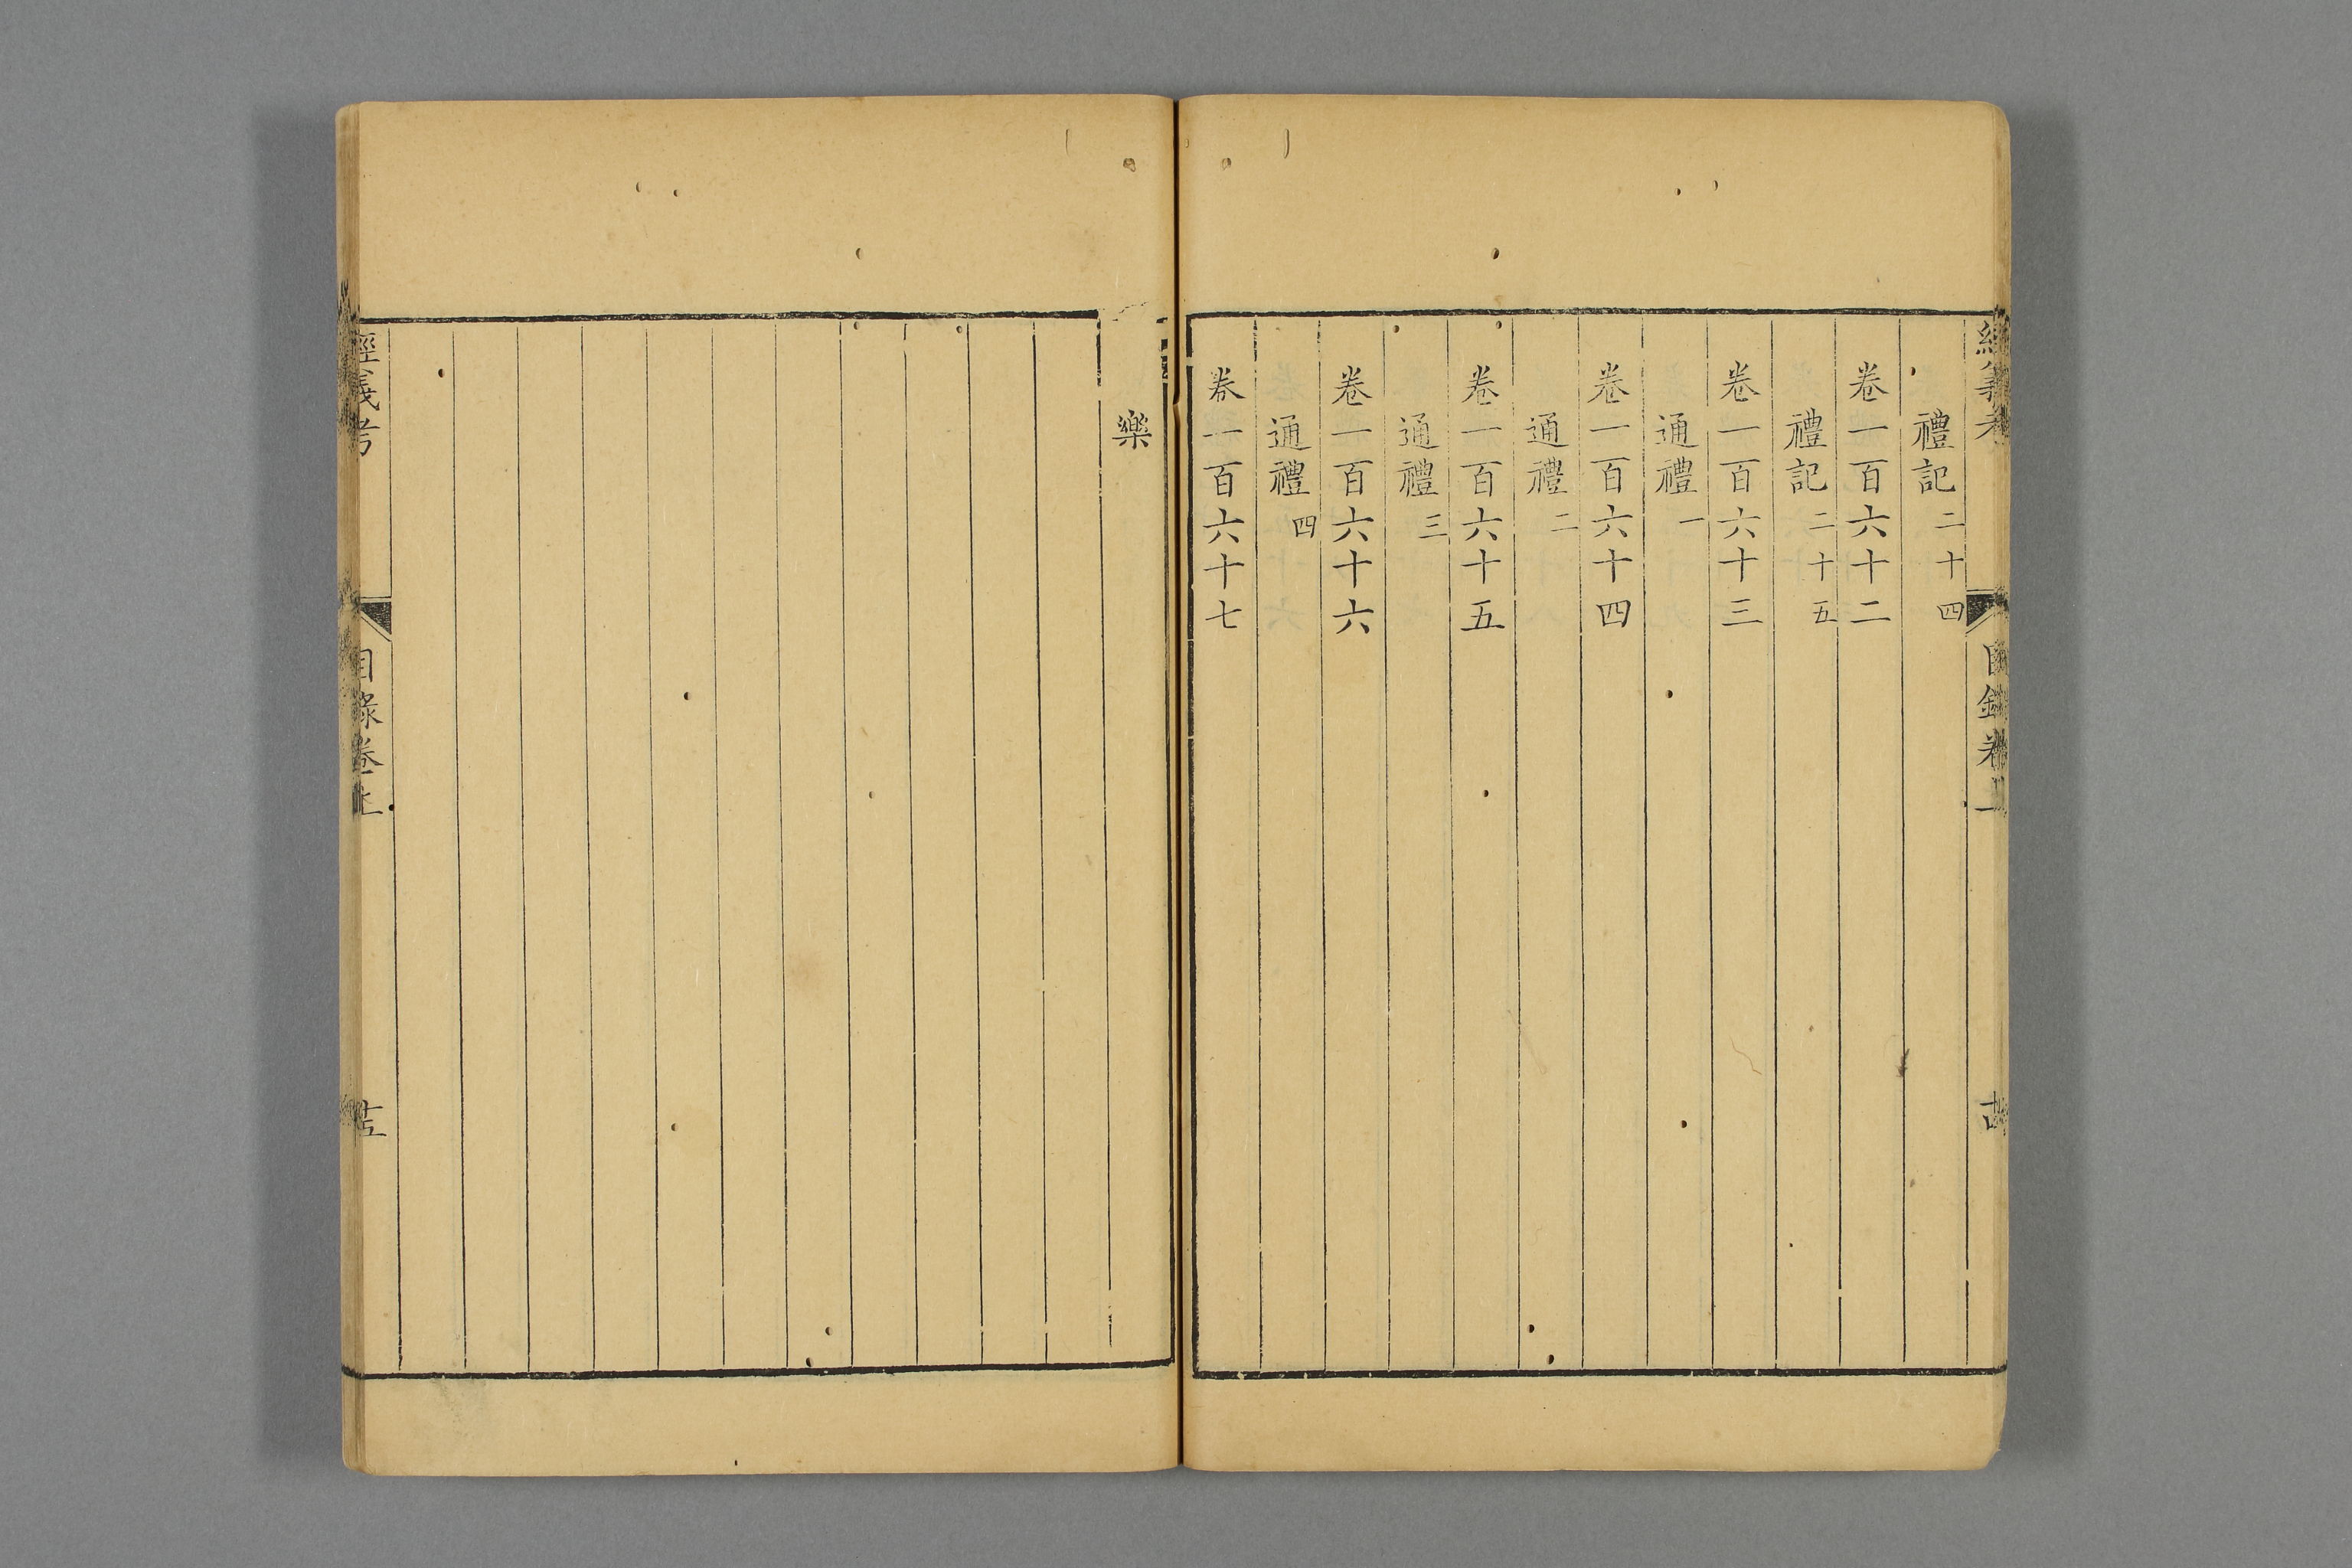 經義考 目錄卷上 古
禮記二十四
卷一百六十二
禮記二十五
卷一百六十三
通禮一
卷一百六十四
通禮二
卷一百六十五
通禮三
卷一百六十六
通禮四
卷一百六十七
樂
經義考 目錄卷上